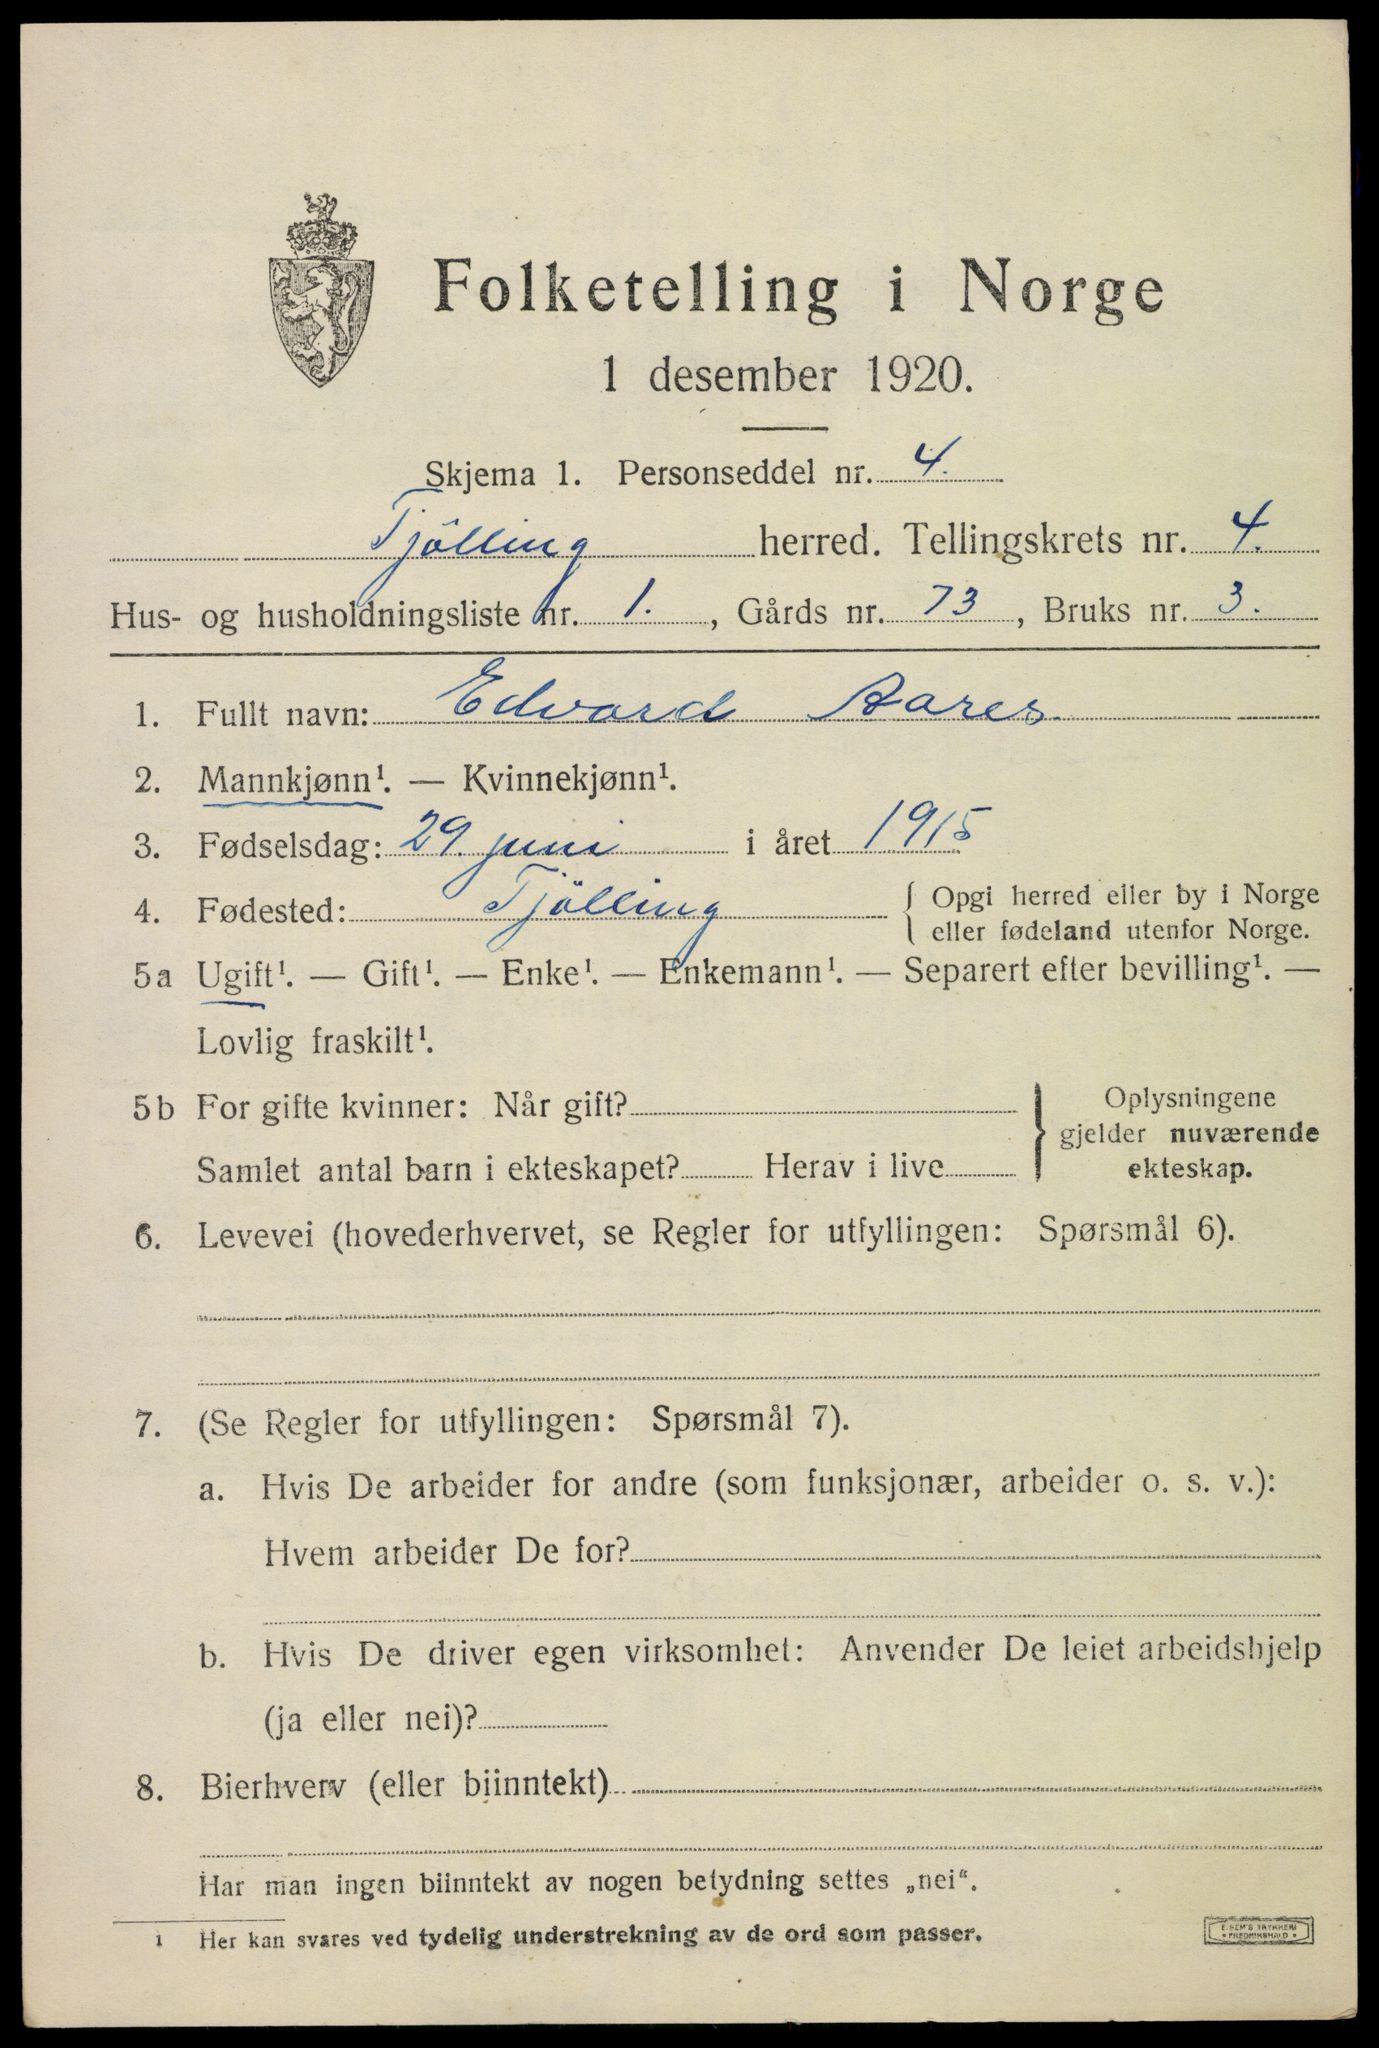 Folketelling i Norge
1 desember 1920.
Skjema 1. Personseddel nr. 4.
Tjölling herred. Tellingskrets nr. 4.
Hus- og husholdningsliste nr. 1., Gårds nr. 73, Bruks nr. 3.
1. Fullt navn: Edvard Aares
2. Mannkjønn¹. — Kvinnekjønn¹.
3. Fødselsdag: 29. juni i året 1915
4. Fødested: Tjölling { Opgi herred eller by i Norge
eller fødeland utenfor Norge.
5a Ugift¹. — Gift¹. — Enke¹. — Enkemann¹. — Separert efter bevilling¹. —
Lovlig fraskilt¹.
5b For gifte kvinner: Når gift?
Samlet antal barn i ekteskapet? Herav i live
} Oplysningene
gjelder nuværende
ekteskap.
6. Levevei (hovederhvervet, se Regler for utfyllingen: Spørsmål 6).
7. (Se Regler for utfyllingen: Spørsmål 7).
a. Hvis De arbeider for andre (som funksjonær, arbeider o. s. v.):
Hvem arbeider De for?
b. Hvis De driver egen virksomhet: Anvender De leiet arbeidshjelp
(ja eller nei)?
8. Bierhverv (eller biinntekt)
Har man ingen biinntekt av nogen betydning settes „nei“.
1 Her kan svares ved tydelig understrekning av de ord som passer.
E. SEM'S TRYKKERI
• FREDRIKSHALD •